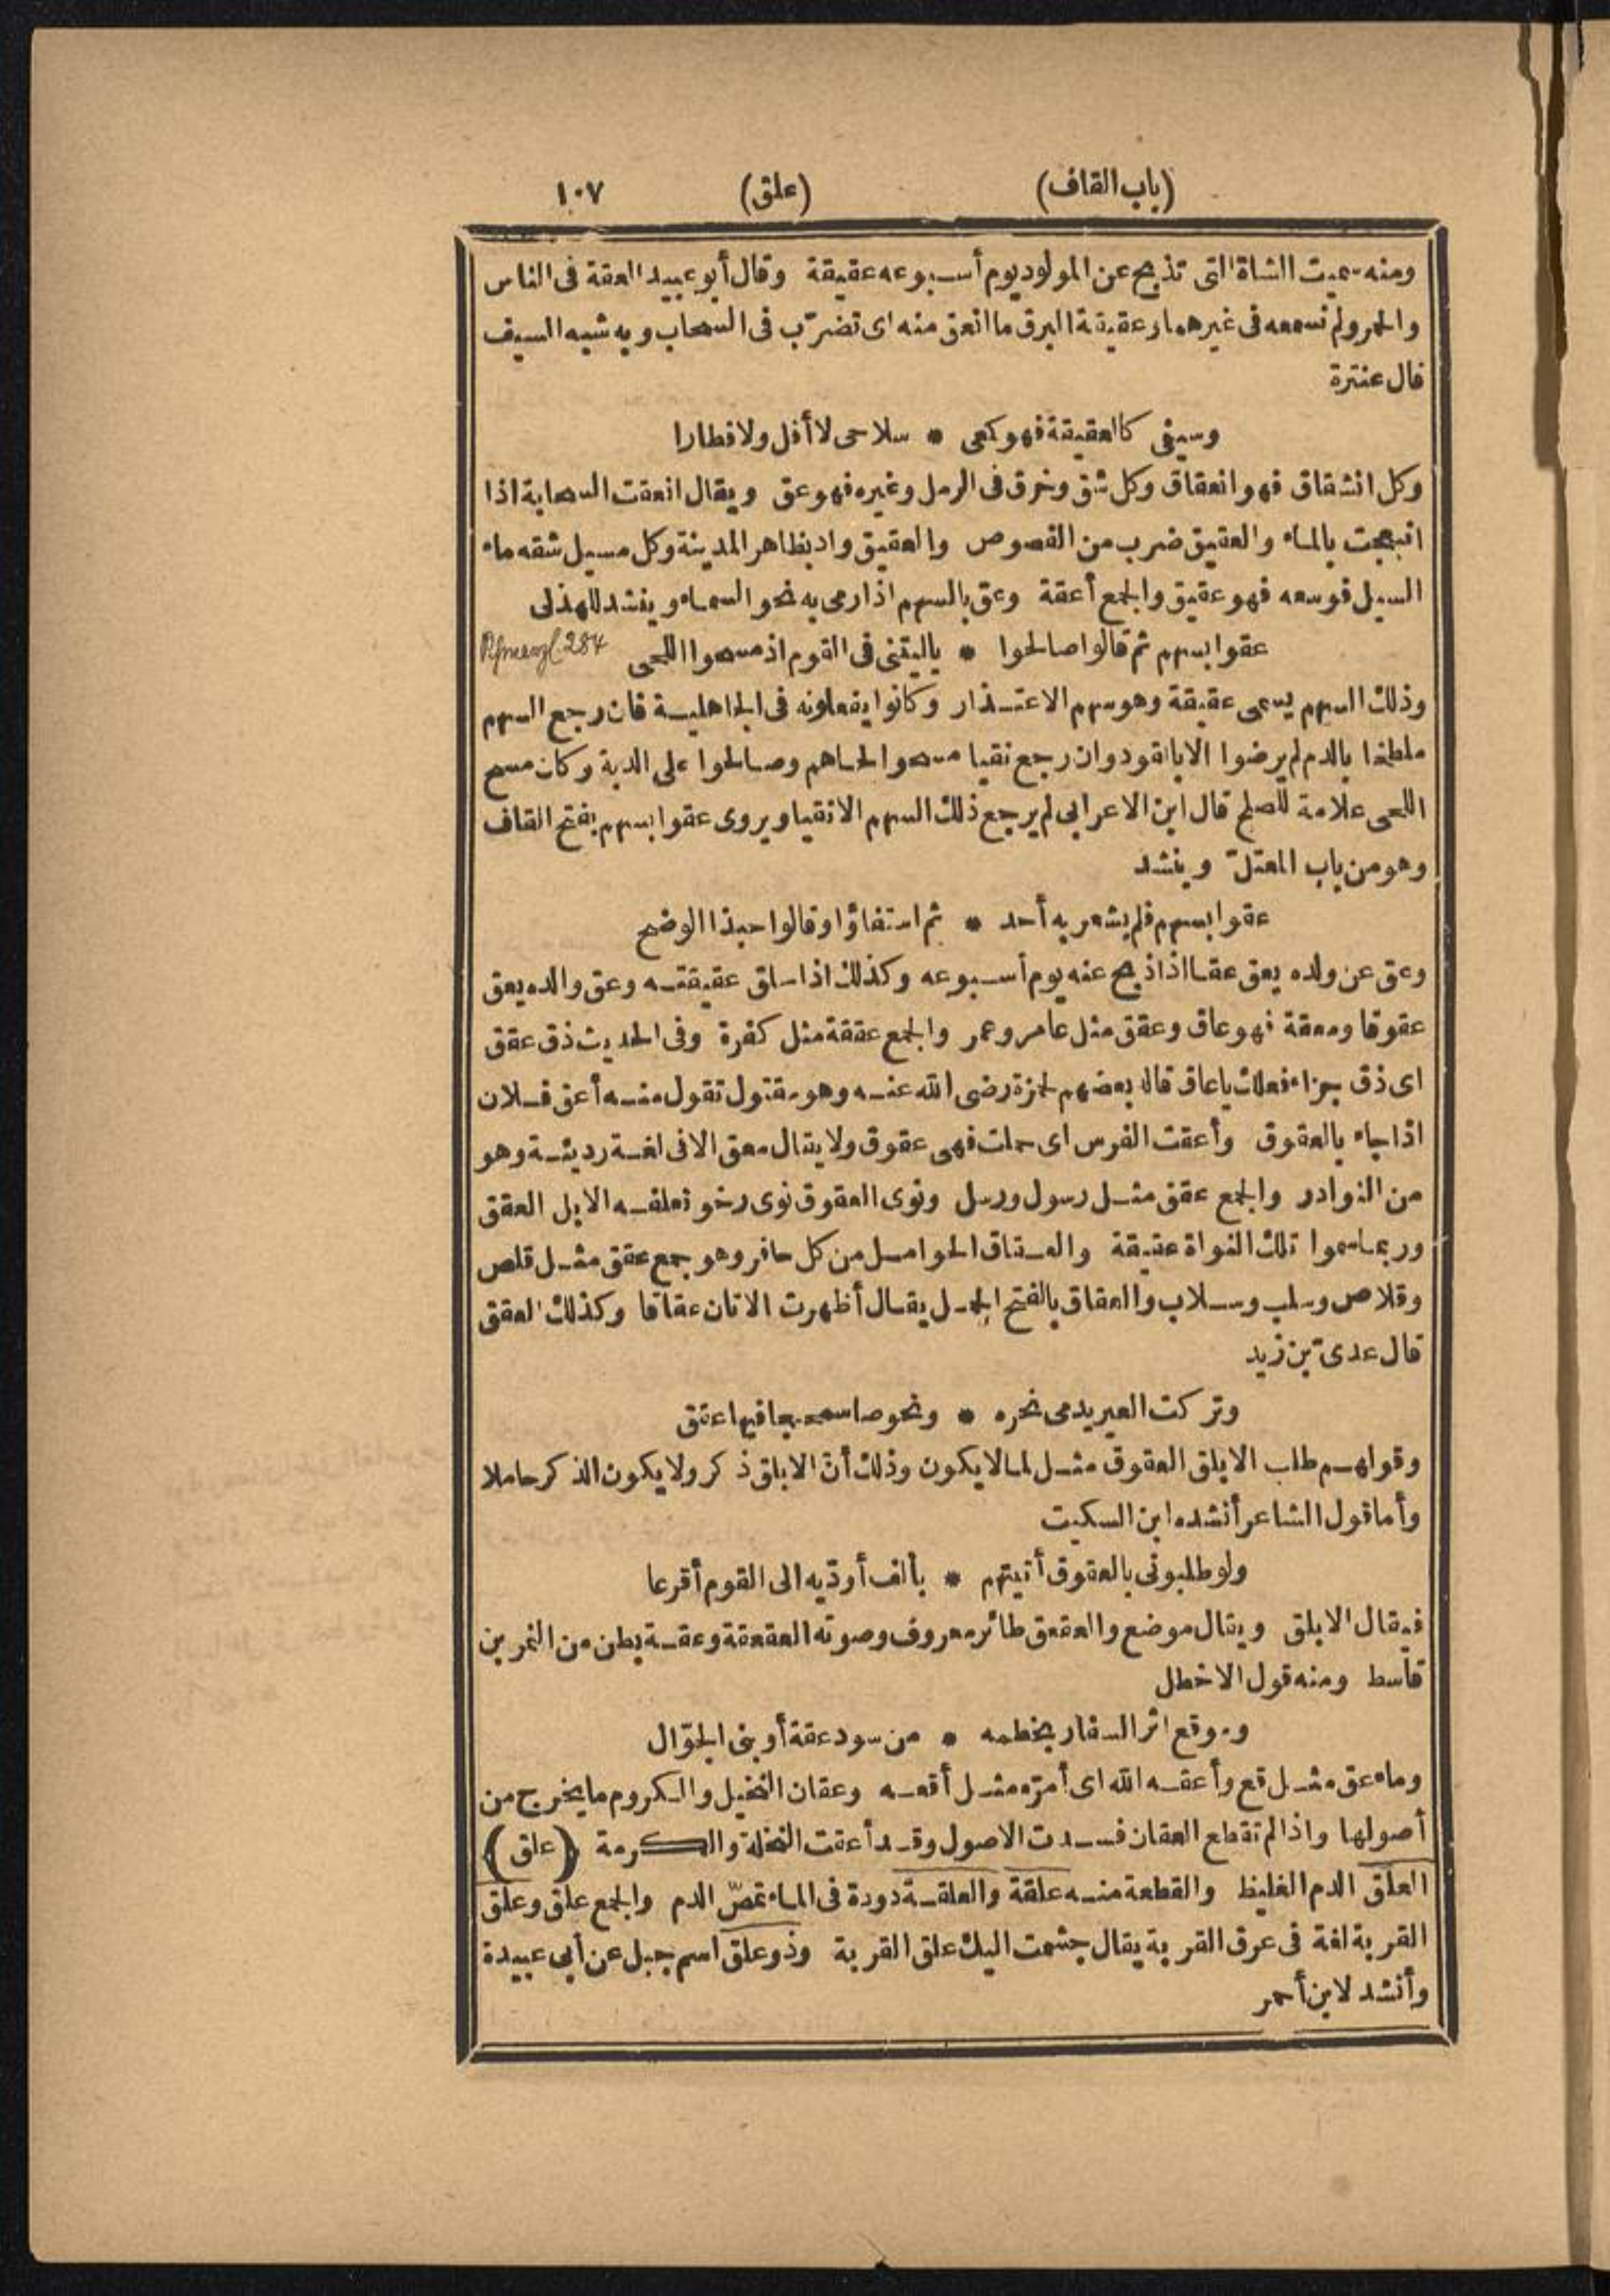 (باب القاف) (علق) ١٠٧
ومنه سميت الشاة التى تذبح عن المولود يوم أسبوعه عقيقة وقال أبو عبيد العقة فى الناس
والحمر ولم نسمعه فى غيرهما وعقيقة البرق ما انعق منه اى تضرّب فى السحاب وبه شبه السيف
قال عنترة
وسيفى كالعقيقة فهو كمعى * سلاحى لا أفل ولا فطارا
وكل انشقاق فهو انعقاق وكل شق وخرق فى الرمل وغيره فهو عق ويقال انعقت السحابة اذا
انبعجت بالماء والعقيق ضرب من الفصوص والعقيق واد بظاهر المدينة وكل مسيل شقه ماء
السيل فوسعه فهو عقيق والجمع أعقة وعق بالسهم اذا رمى به نحو السماء وينشد للهذلى
عقوا بسهم ثم قالوا صالحوا * ياليتنى فى القوم اذ مسحوا اللحى 284
وذلك السهم يسمى عقيقة وهو سهم الاعتذار وكانوا يفعلونه فى الجاهلية فان رجع السهم
ملطخا بالدم لم يرضوا الا بالقود وان رجع نقيا مسحوا لحاهم وصالحوا على الدية وكان مسح
اللحى علامة للصلح قال ابن الاعرابى لم يرجع ذلك السهم الا نقيا ويروى عقوا بسهم بفتح القاف
وهو من باب المعتلّ وينشد
عقوا بسهم فلم يشعر به أحد * ثم استفاؤا وقالوا حبذا الوضح
وعق عن ولده يعق عقا اذا ذبح عنه يوم أسبوعه وكذلك اذا حلق عقيقته وعق والده يعق
عقوقا ومعقة فهو عاق وعقق مثل عامر وعمر والجمع عققة مثل كفرة وفى الحديث ذق عقق
اى ذق جزاء فعلك ياعاق قاله بعضهم لحمزة رضى الله عنه وهو مقتول تقول منه أعق فلان
اذا جاء بالعقوق وأعقت الفرس اى حملت فهى عقوق ولا يقال معق الا فى لغة رديئة وهو
من النوادر والجمع عقق مثل رسول ورسل ونوى العقوق نوى رخو تعلفه الابل العقق
وربما سموا تلك النواة عقيقة والعقاق الحوامل من كل حافر وهو جمع عقق مثل قلص
وقلاص وسلب وسلاب والعقاق بالفتح الحمل يقال أظهرت الاتان عقاقا وكذلك العقق
قال عدىّ بن زيد
وتركت العير يدمى نحره * ونحوصا سمحجا فيها عقق
وقولهم طلب الابلق العقوق مثل لما لا يكون وذلك أنّ الابلق ذكر ولا يكون الذكر حاملا
وأما قول الشاعر أنشده ابن السكيت
ولو طلبونى بالعقوق أتيتهم * بألف أودّيه الى القوم أقرعا
فيقال الابلق ويقال موضع والعقعق طائر معروف وصوته العقعقة وعقة بطن من النمر بن
قاسط ومنه قول الاخطل
وموقع اثر السفار بخطمه * من سود عقة أو بنى الجوّال
وماء عق مثل قع وأعقه الله اى أمرّه مثل أقعه وعقان النخيل والكروم ما يخرج من
أصولها واذا لم تقطع العقان فسدت الاصول وقد أعقت النخلة والكرمة (علق)
العلق الدم الغليظ والقطعة منه علقة والعلقة دودة فى الماء تمصّ الدم والجمع علق وعلق
القربة لغة فى عرق القربة يقال جشمت اليك علق القربة وذو علق اسم جبل عن أبى عبيدة
وأنشد لابن أحمر